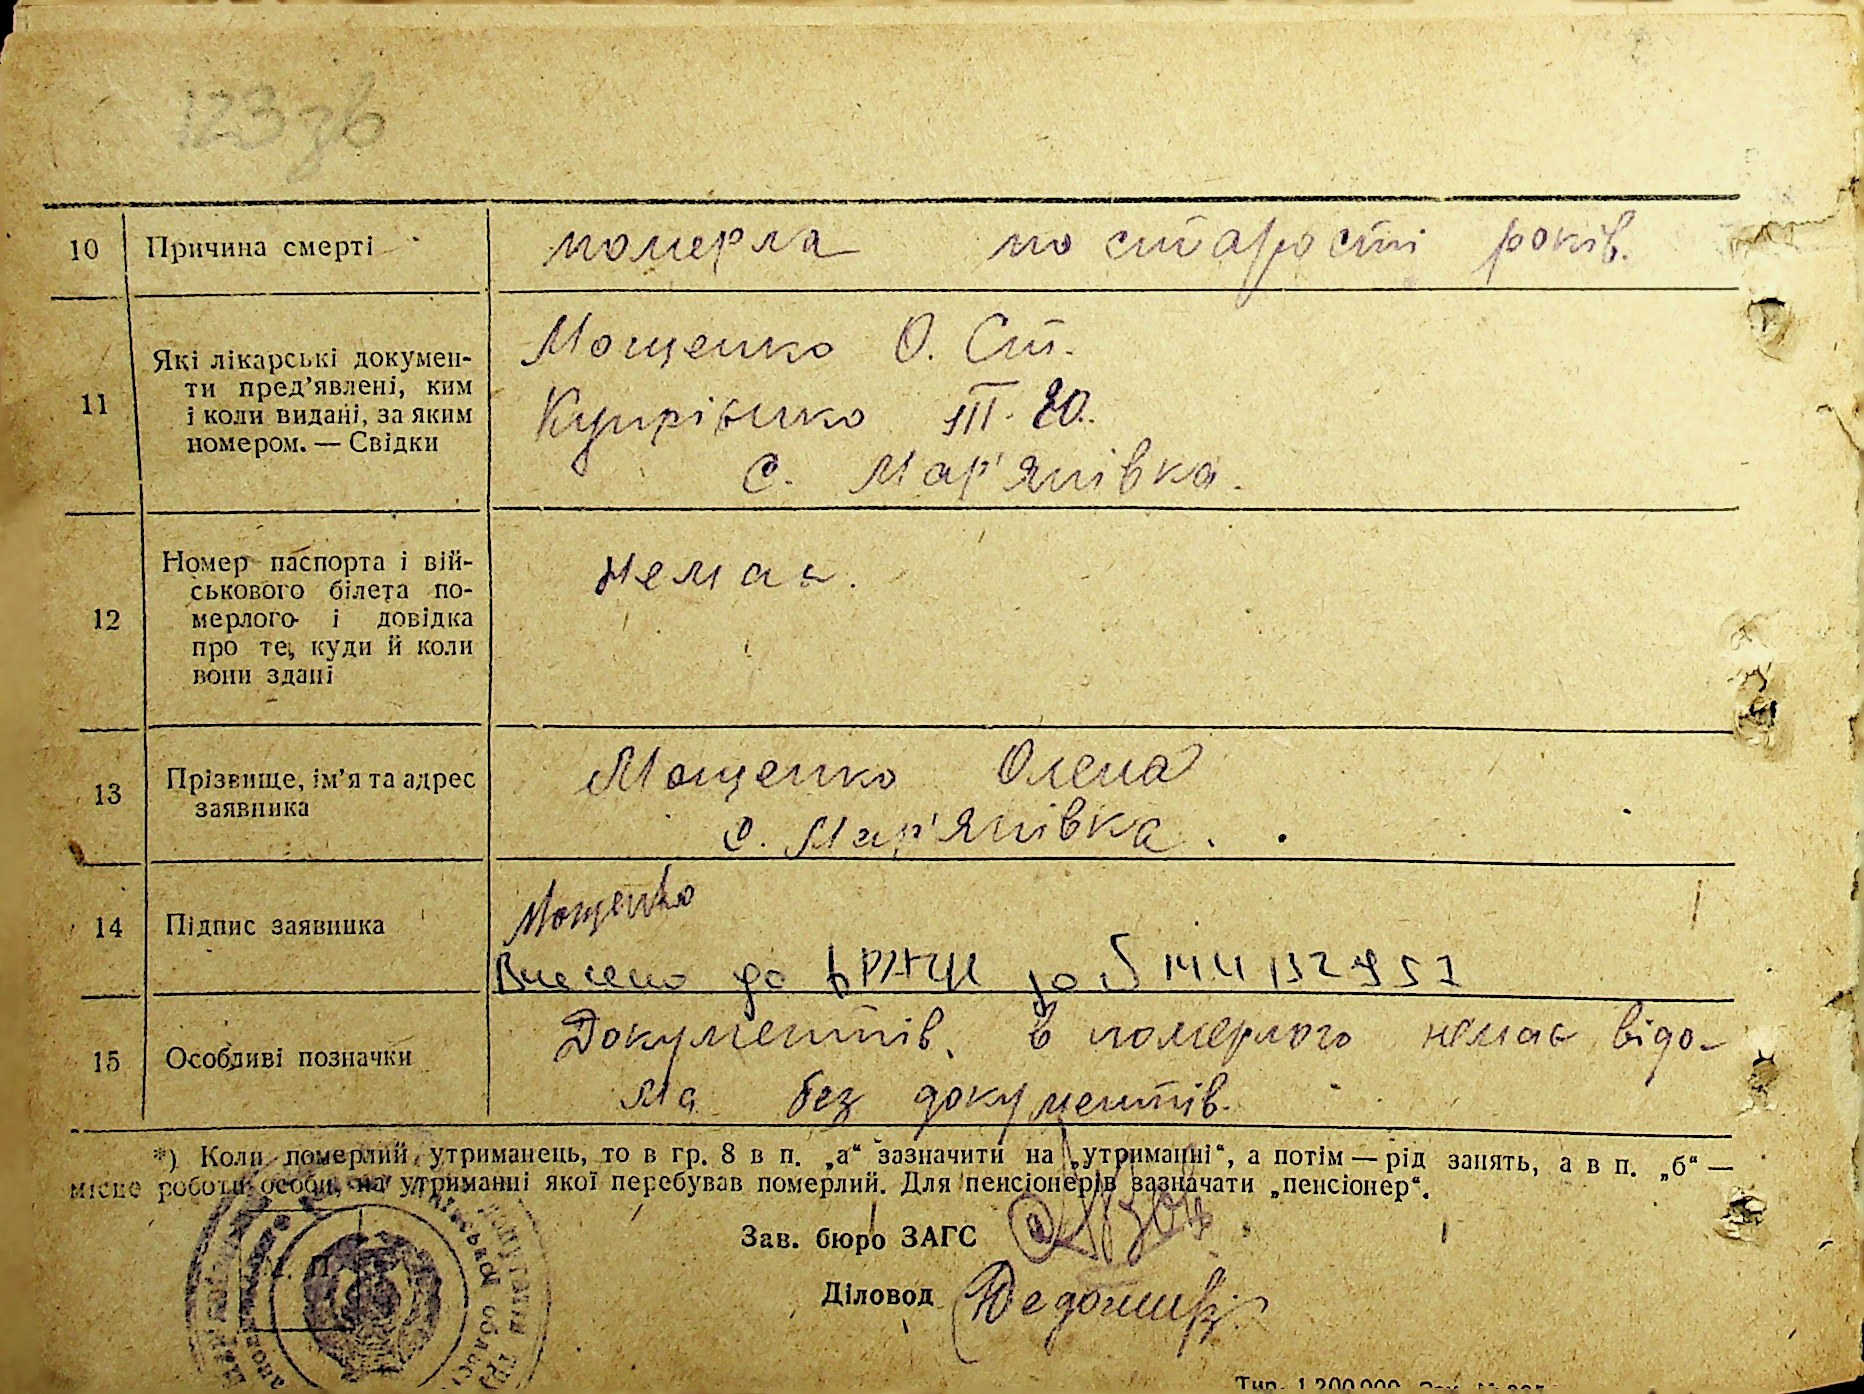 123 зв
10 Причина смерті померла по старості років.
11 Які лікарські докумен-
ти пред’явлені, ким
і коли видані, за яким
номером. — Свідки
Мощенко О. Ст.
Купрієнко ІІІ. Ю.
с. Мар'янівка.
12 Номер паспорта і вій-
ськового білета по-
мерлого і довідка
про те, куди й коли
вони здані
немає.
13 Прізвище, ім’я та адрес
заявника
Мощенко Олена
с. Мар'янівка.
14 Підпис заявника
Мощенко
Внесено до ДРАЦС
15 Особливі позначки
Документів, в померлого немає відо-
ма без документів.
*) Коли померлий утриманець, то в гр. 8 в п. „а“ зазначити на „утриманні“, а потім — рід занять, а в п. „б“ —
місце роботи особи, на утриманні якої перебував померлий. Для пенсіонерів зазначати „пенсіонер“.
Зав. бюро ЗАГС
Діловод
Тир. 1.200.000